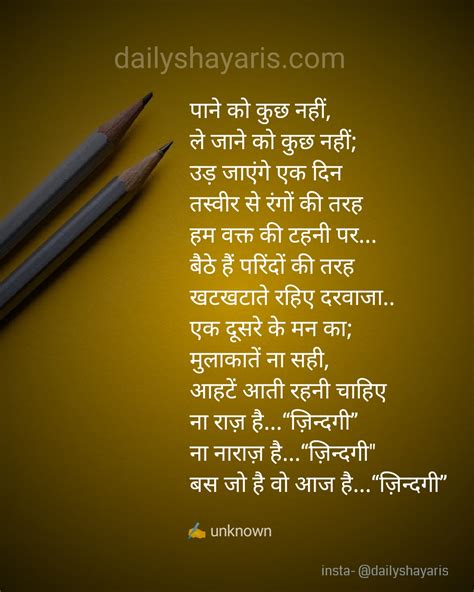 dailyshayaris.com
पाने को कुछ नहीं,
ले जाने को कुछ नहीं;
उड़ जाएंगे एक दिन
तस्वीर से रंगों की तरह
हम वक्त की टहनी पर...
बैठे हैं परिंदों की तरह
खटखटाते रहिए दरवाजा..
एक दूसरे के मन का;
मुलाकातें ना सही,
आहटें आती रहनी चाहिए
ना राज़ है...“ज़िन्दगी”
ना नाराज़ है...“ज़िन्दगी"
बस जो है वो आज है...“ज़िन्दगी”
✍️ unknown
insta- @dailyshayaris